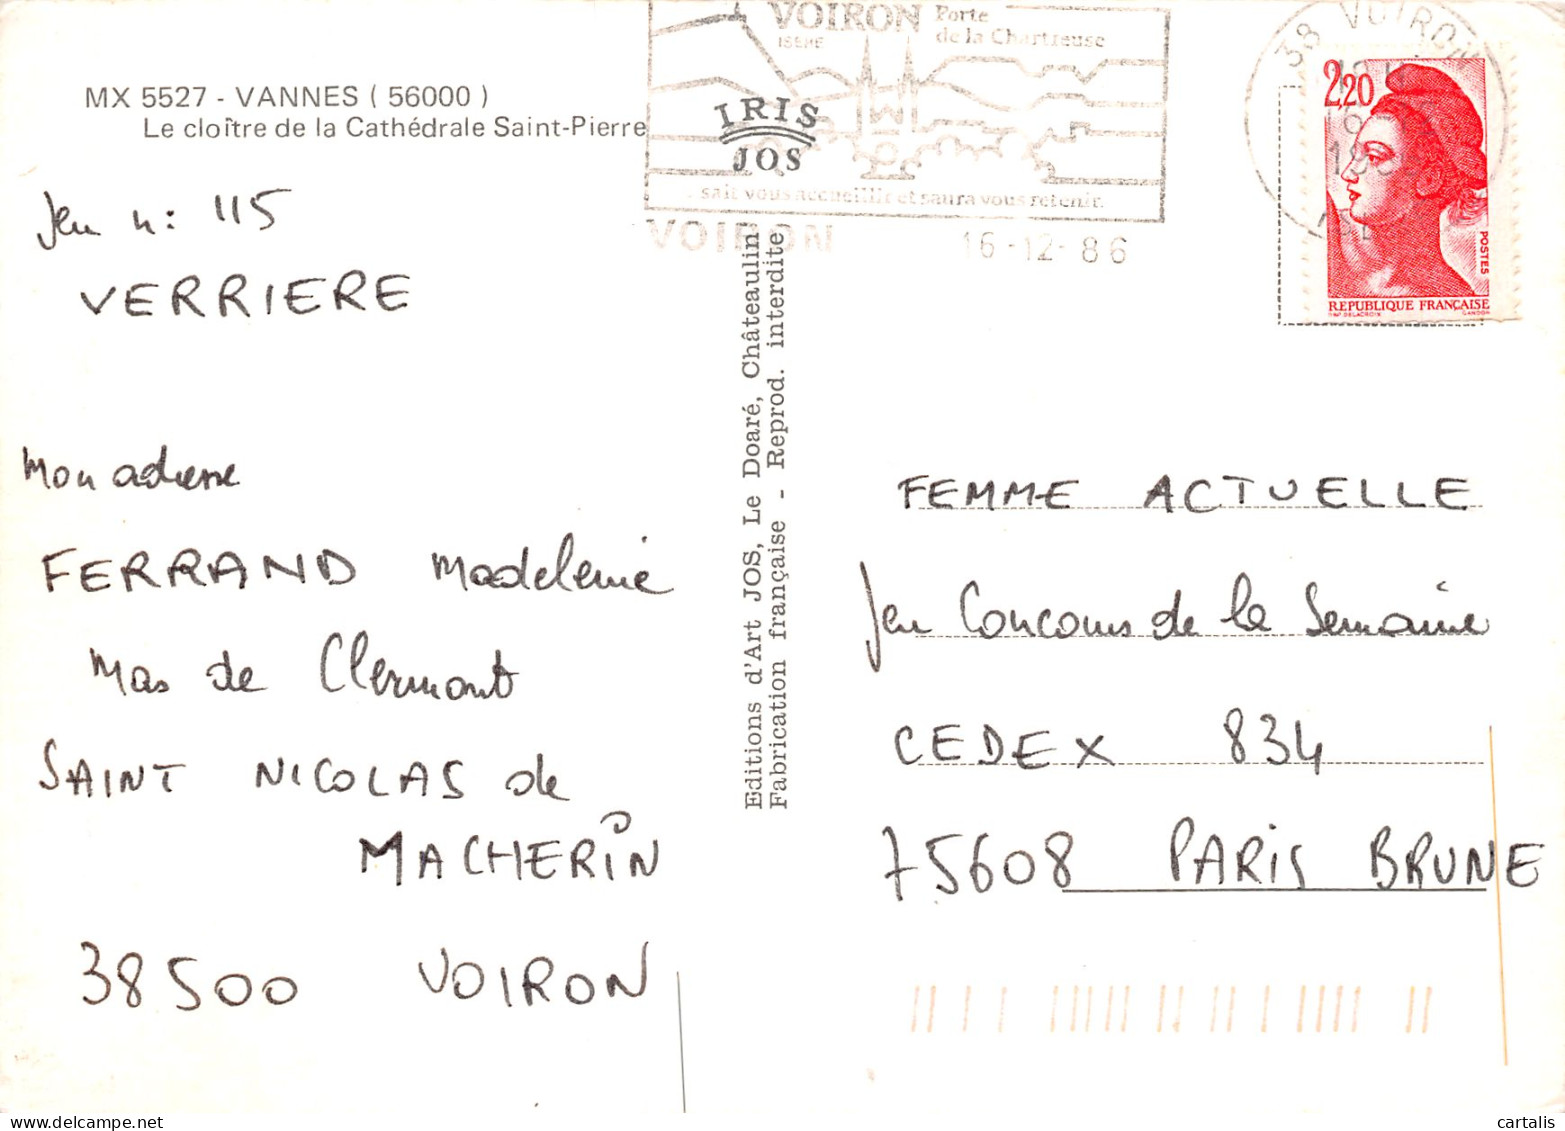 MX 5527 - VANNES ( 56000 )
Le cloître de la Cathédrale Saint-Pierre
VOIRON
ISERE
Porte
de la Chartreuse
IRIS
JOS
sait vous accueillir et saura vous retenir.
VOIRON
16-12-86
38 VOIRON
2,20
POSTES
REPUBLIQUE FRANÇAISE
DELACROIX
GANDON
Jeu n: 115
VERRIERE
Mon adresse
FERRAND Madeleine
Mas de Clermont
SAINT NICOLAS de
MACHERIN
38500 VOIRON
Editions d'Art JOS, Le Doaré, Châteaulin
Fabrication française - Reprod. interdite
FEMME ACTUELLE
Jeu Concours de la Semaine
CEDEX 834
75608 PARIS BRUNE
cartalis